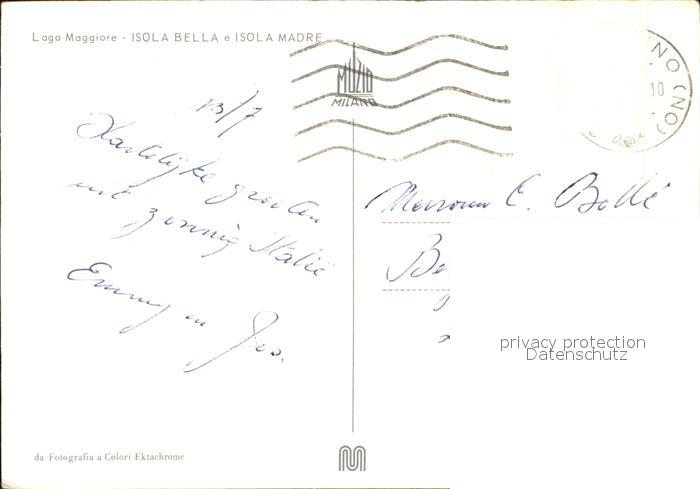 Lago Maggiore - ISOLA BELLA e ISOLA MADRE
MUZIO
MILANO
NO (NO)
10
13/7
Hartelijke groeten
uit zonnig Italië
Emmy en Jos.
C. Bollé
privacy protection
Datenschutz
da Fotografia a Colori Ektachrome